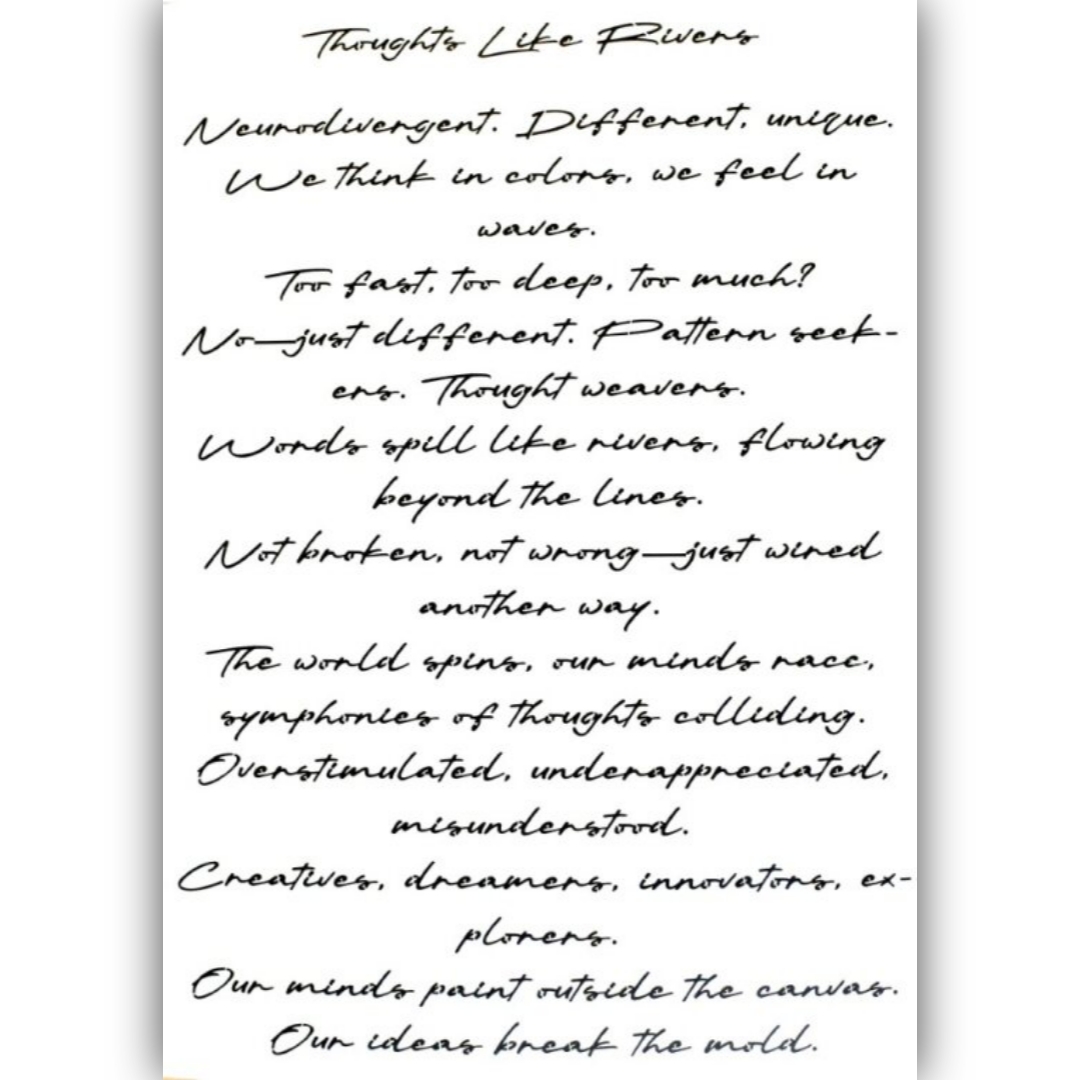 Thoughts Like Rivers
Neurodivergent. Different, unique.
We think in colors, we feel in
waves.
Too fast, too deep, too much?
No—just different. Pattern seek-
ers. Thought weavers.
Words spill like rivers, flowing
beyond the lines.
Not broken, not wrong—just wired
another way.
The world spins, our minds race,
symphonies of thoughts colliding.
Overstimulated, underappreciated,
misunderstood.
Creatives, dreamers, innovators, ex-
plorers.
Our minds paint outside the canvas.
Our ideas break the mold.